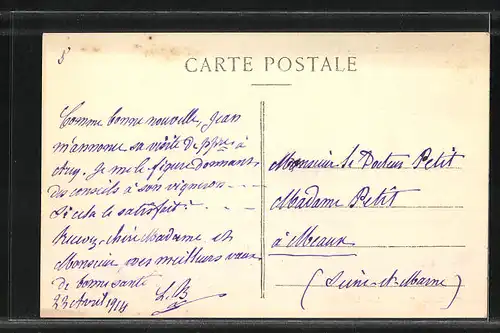 8
CARTE POSTALE
Comme bonne nouvelle, Jean
m'annonce sa visite de à
Aug. Je me le figure donnant
des conseils à son vigneron - - -
Si cela le satisfait! - - -
Recevez, chère Madame et
Monsieur, mes meilleurs vœux
de bonne santé
23 Avril 1918
L.B
Monsieur le Docteur Petit
Madame Petit
à Meaux
(Seine-et-Marne)